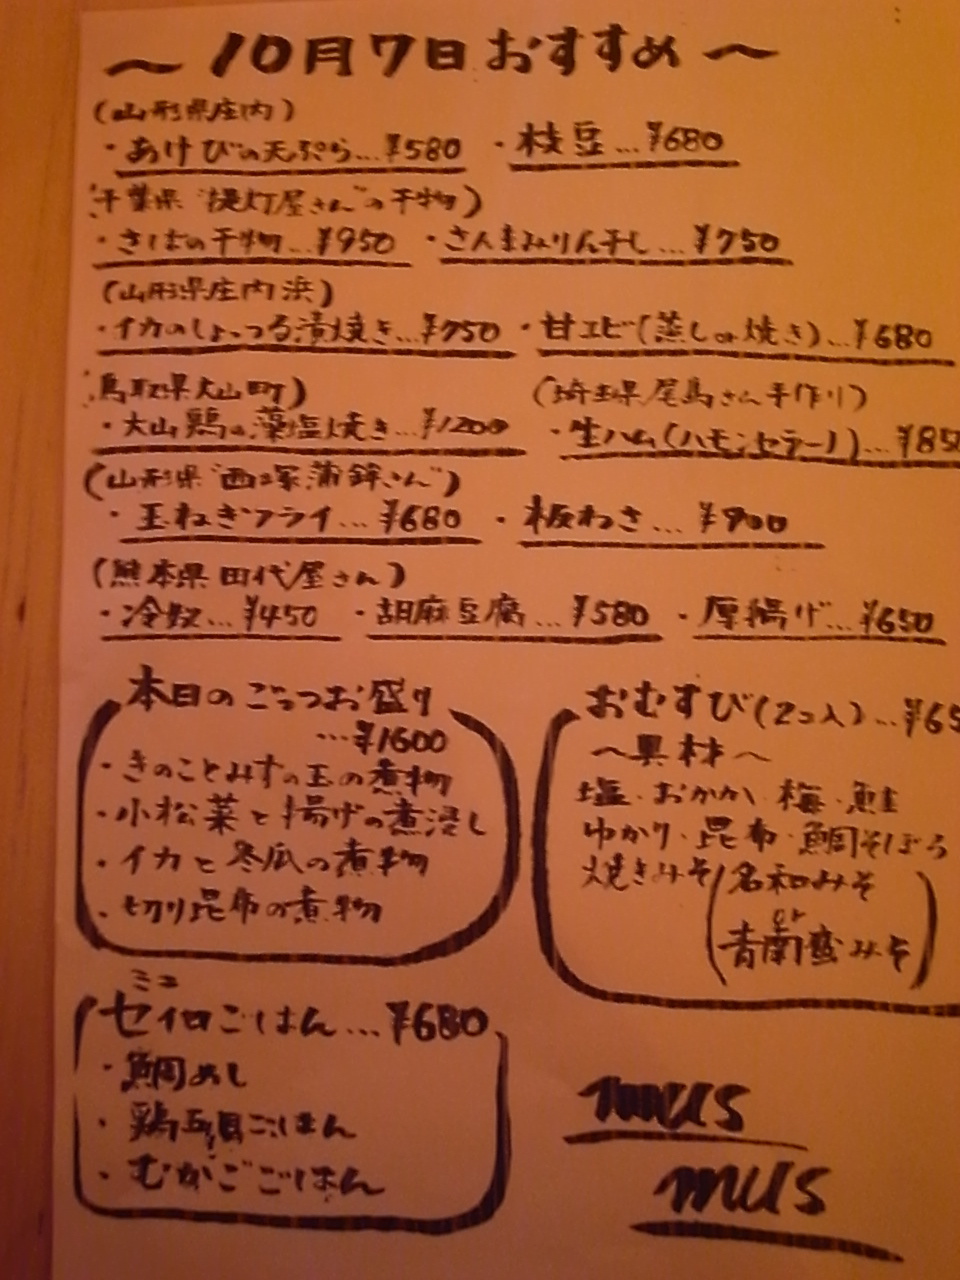 〜10月7日おすすめ〜
(山形県庄内)
・あけびの天ぷら…¥580 ・枝豆…¥680
千葉県"提灯屋さん"の干物)
・さばの干物…¥950 ・さんまみりん干し…¥750
(山形県庄内浜)
・イカのしょっつる漬焼き…¥750 ・甘エビ(蒸しor焼き)…¥680
鳥取県大山町) (埼玉県尾島さん手作り)
・大山鶏の藻塩焼き…¥1200 ・生ハム(ハモンセラーノ)…¥850
(山形県"西塚蒲鉾さん")
・玉ねぎフライ…¥680 ・板わさ…¥900
(熊本県田代屋さん)
・冷奴…¥450 ・胡麻豆腐…¥580 ・厚揚げ…¥650
本日のごっつお盛り
…¥1600
・きのことみずの玉の煮物
・小松菜と揚げの煮浸し
・イカと冬瓜の煮物
・切り昆布の煮物
おむすび(2コ入)…¥65
〜具材〜
塩・おかか・梅・鮭
ゆかり・昆布・鯛そぼろ
焼きみそ(名和みそ
青南蛮みそ)
ミニ
セイロごはん…¥680
・鯛めし
・鶏五目ごはん
・むかごごはん
mus
mus